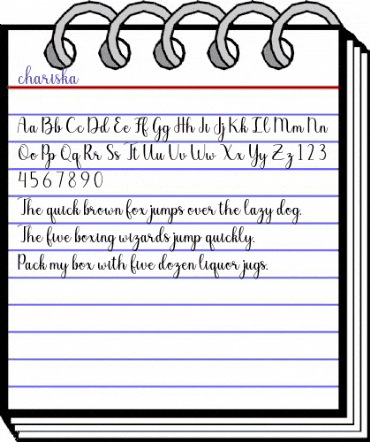 chariska
Aa Bb Cc Dd Ee Ff Gg Hh Ii Jj Kk Ll Mm Nn
Oo Pp Qq Rr Ss Tt Uu Vv Ww Xx Yy Zz 1 2 3
4 5 6 7 8 9 0
The quick brown fox jumps over the lazy dog.
The five boxing wizards jump quickly.
Pack my box with five dozen liquor jugs.